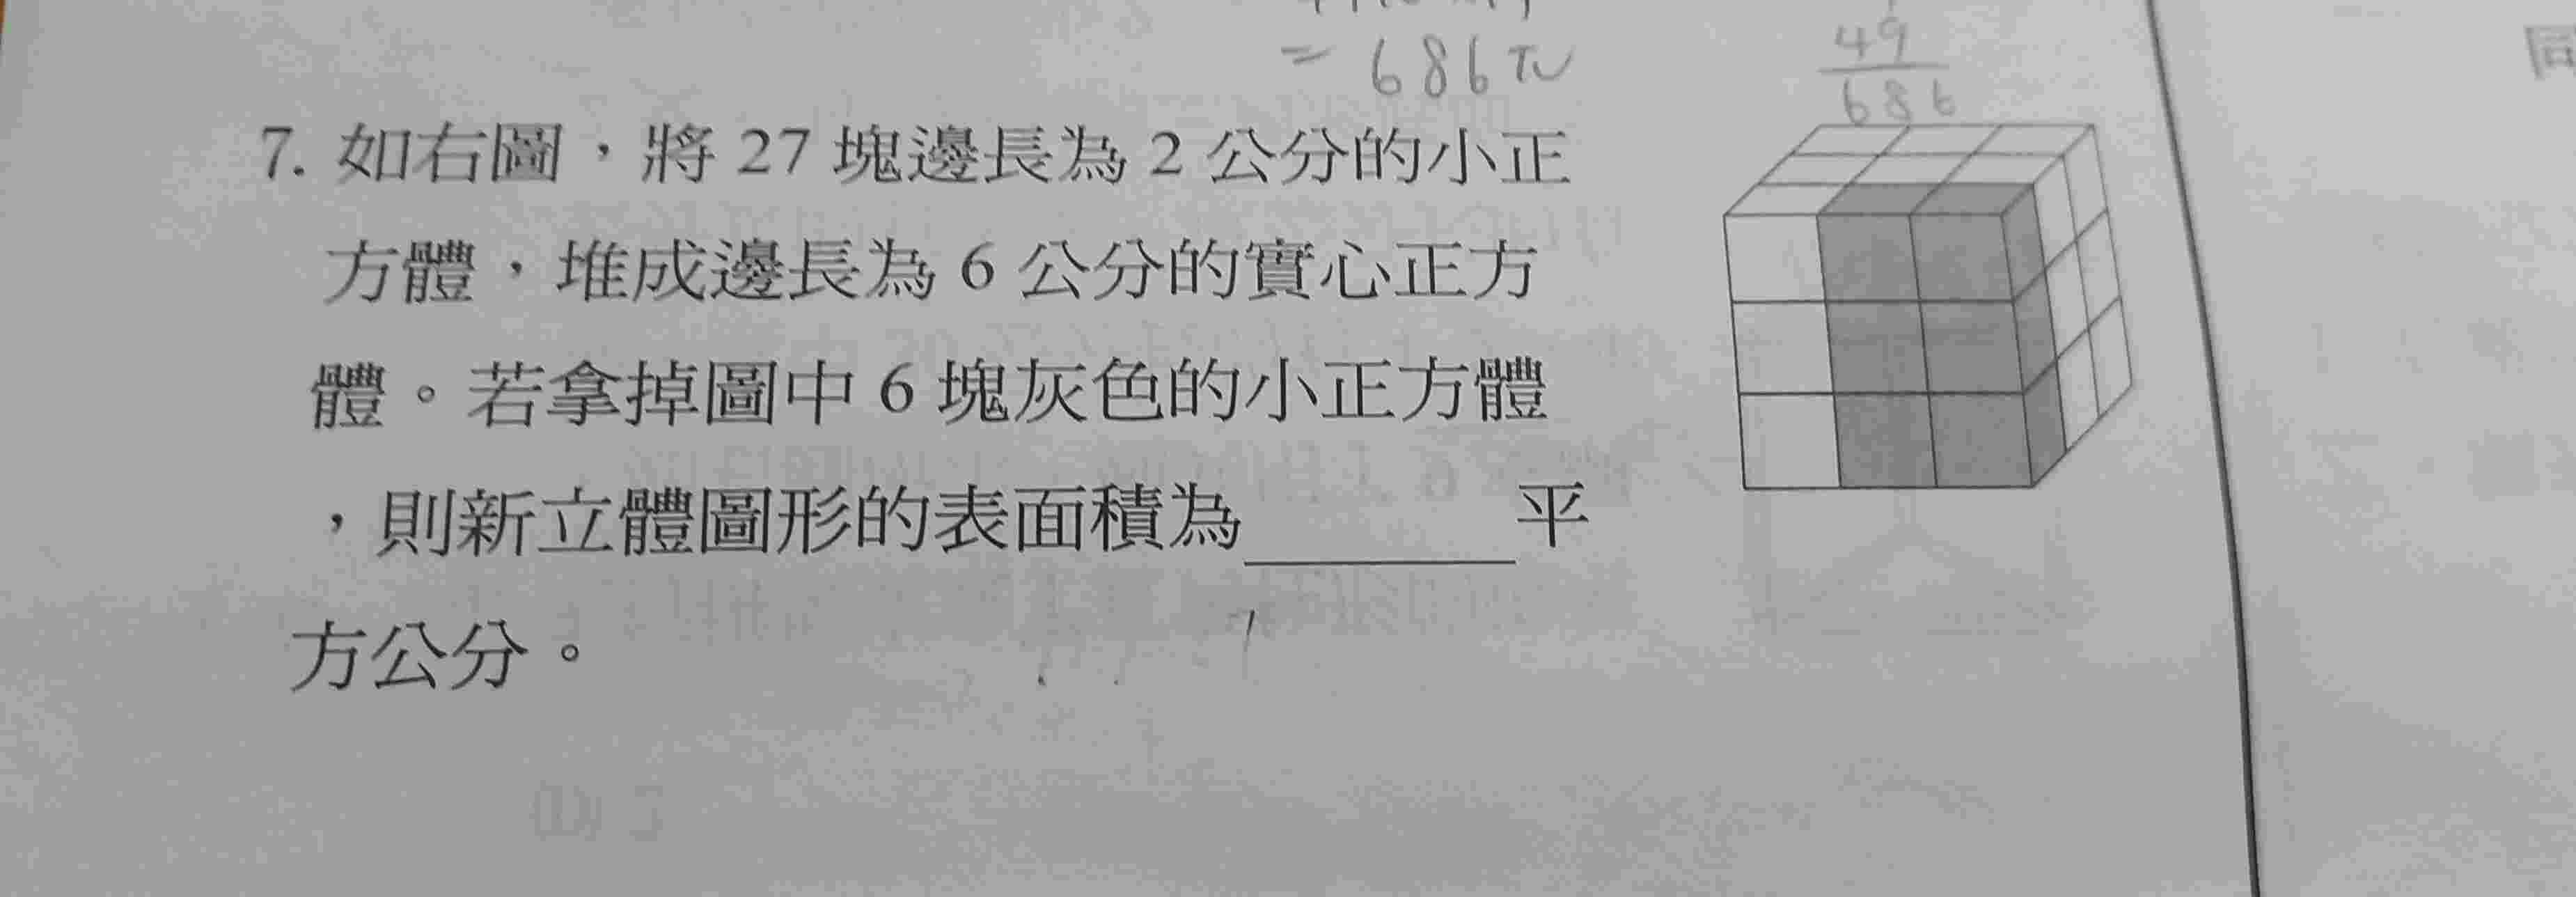 = 686π
49
686
同
7. 如右圖，將 27 塊邊長為 2 公分的小正
方體，堆成邊長為 6 公分的實心正方
體。若拿掉圖中 6 塊灰色的小正方體
，則新立體圖形的表面積為______平
方公分。